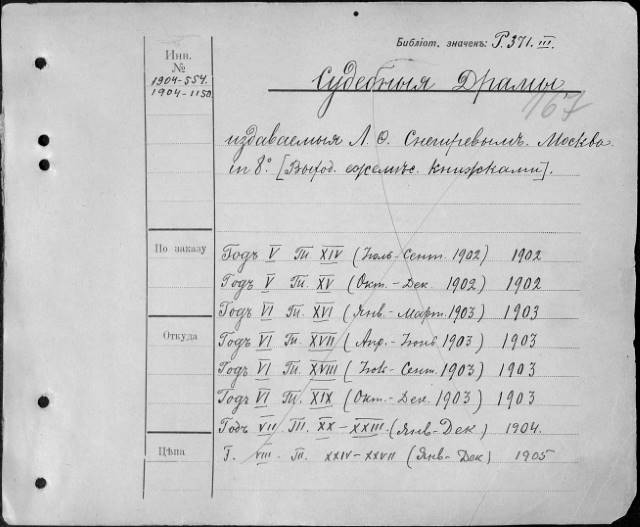 Библіот. значекъ: Р. 371. III.
Инв.
№
1904-554.
1904-1150.
Судебныя Драмы
167
издаваемыя Л. Ѳ. Снегиревымъ. Москва.
in 8°. [Выход. ежемѣс. книжками].
По заказу
Годъ V Т. XIV (Іюль-Сент. 1902) 1902
Годъ V Т. XV (Окт.-Дек. 1902) 1902
Годъ VI Т. XVI (Янв.-Март. 1903) 1903
Откуда
Годъ VI Т. XVII (Апр.-Іюнь 1903) 1903
Годъ VI Т. XVIII (Іюль-Сент. 1903) 1903
Годъ VI Т. XIX (Окт.-Дек. 1903) 1903
Годъ VII Т. XX-XXIII. (Янв-Дек) 1904.
Цѣна
Г. VIII. Т. XXIV-XXVII (Янв-Дек) 1905